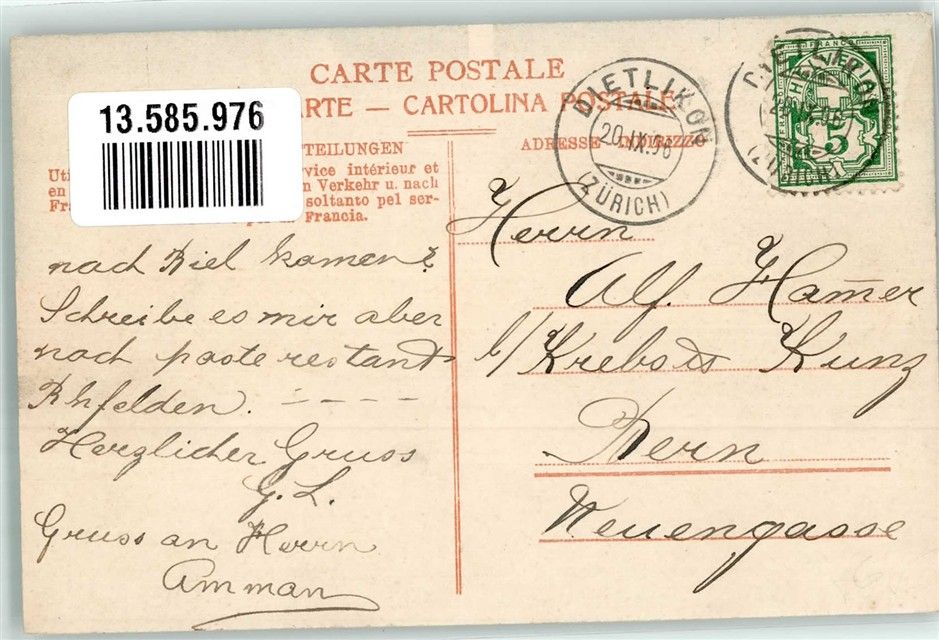 CARTE POSTALE
ARTE — CARTOLINA POSTALE
13.585.976
TEILUNGEN
ADRESSE INDIRIZZO
Uti vice intérieur et
en n Verkehr u. nach
Fra soltanto pel ser-
Francia.
DIETLIKON
20.IX.06
(ZÜRICH)
FRANCO
HELVETIA
5
nach Biel kamen?
Schreibe es mir aber
nach poste restant
Rhfelden.
Herzlicher Gruss
G. L.
Gruss an Herrn
Amman
Herrn
Alf. Ham̄er
b/ Krebs &
Kunz
Bern
Neuengasse